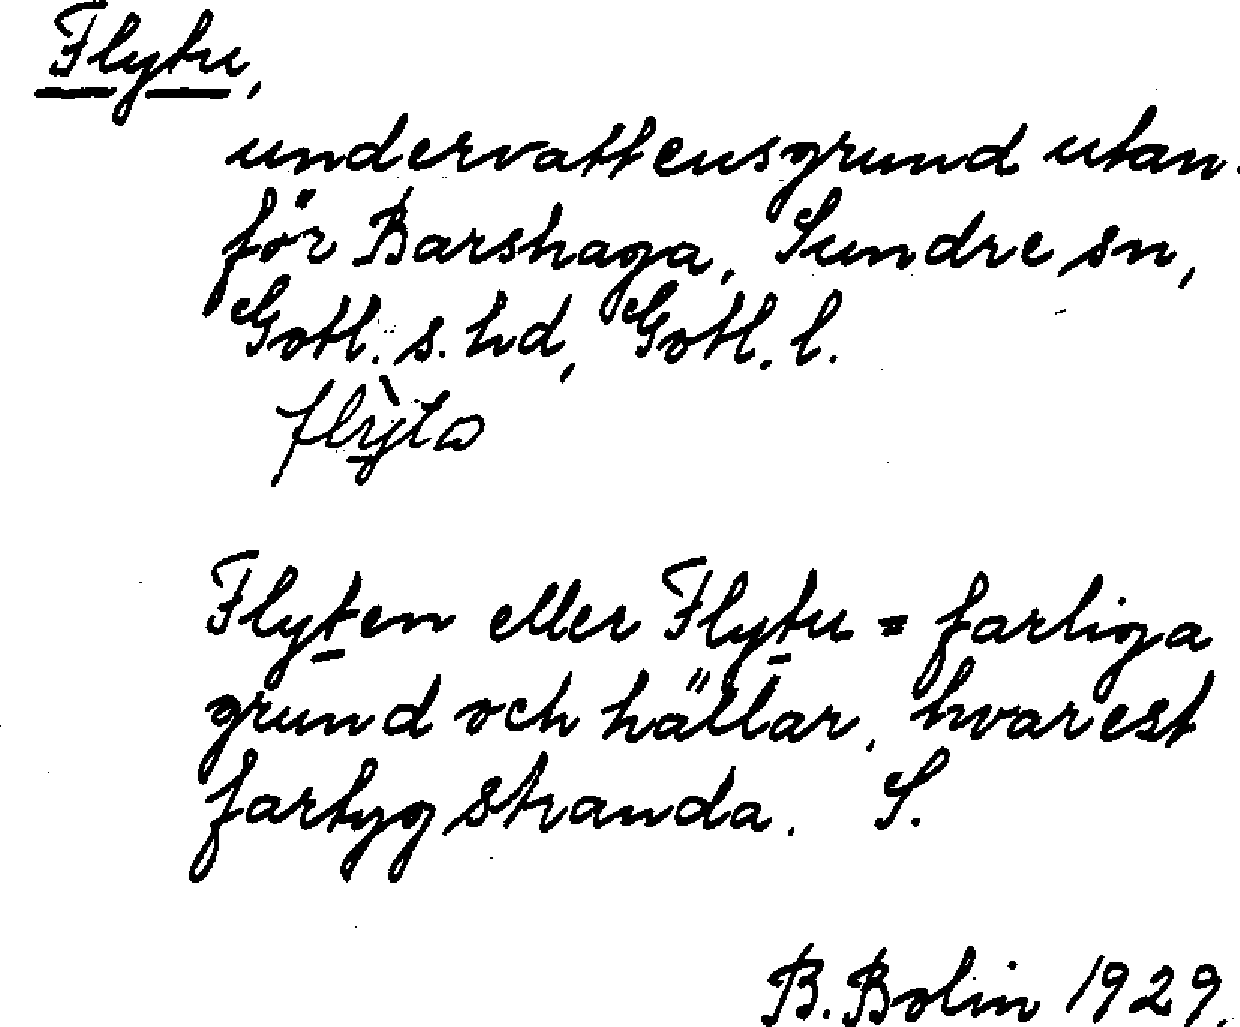 Flytu,
undervattensgrund utan-
för Barshaga, Sundre sn,
Gotl. s. hd, Gotl. l.
flỳta
Flyten eller Flytu = farliga
grund och hällar, hvarest
fartyg stranda. S.
B. Bolin 1929.